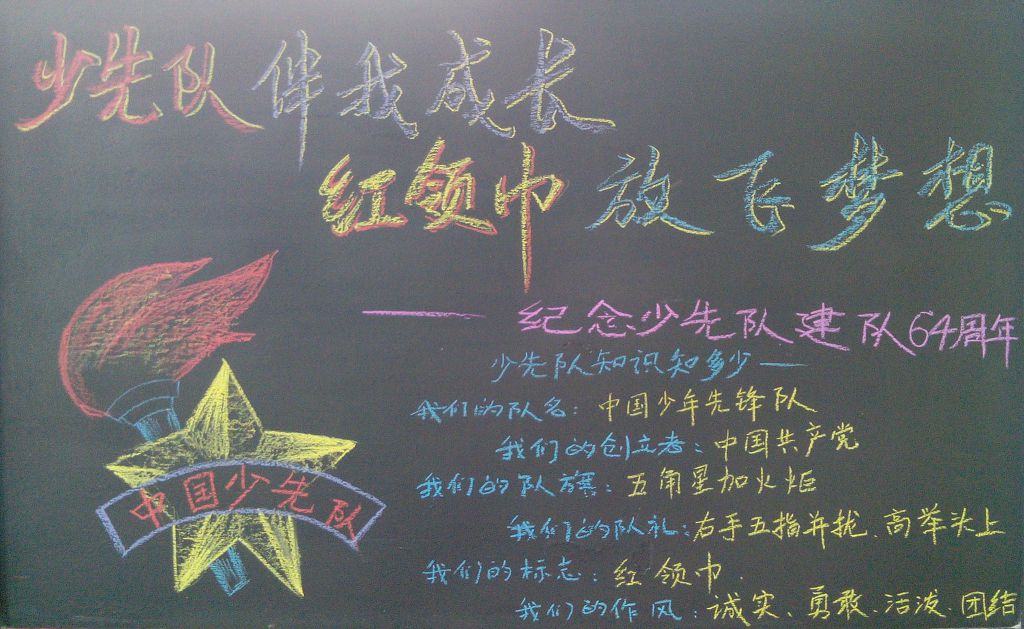 少先队伴我成长
红领巾放飞梦想
——纪念少先队建队64周年
少先队知识知多少——
我们的队名：中国少年先锋队
我们的创立者：中国共产党
我们的队旗：五角星加火炬
我们的队礼：右手五指并拢、高举头上
我们的标志：红领巾.
我们的作风：诚实、勇敢、活泼、团结
中国少先队